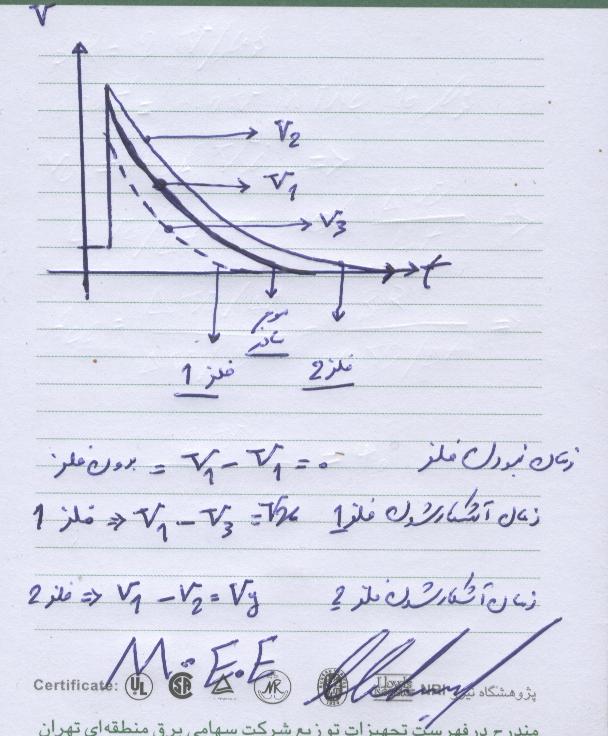 V
V2
V1
V3
t
موج
فلز 1
فلز 2
زمان نبودن فلز
بدون فلز = V1 - V1 = 0
زمان آشکارشدن فلز 1
فلز 1 ⇒ V1 - V3 = Vx
زمان آشکارشدن فلز 2
فلز 2 ⇒ V1 - V2 = Vy
M.E.E
Certificate: UL SA NR
پژوهشگاه نیرو NRI
مندرج در فهرست تجهیزات توزیع شرکت سهامی برق منطقه‌ای تهران